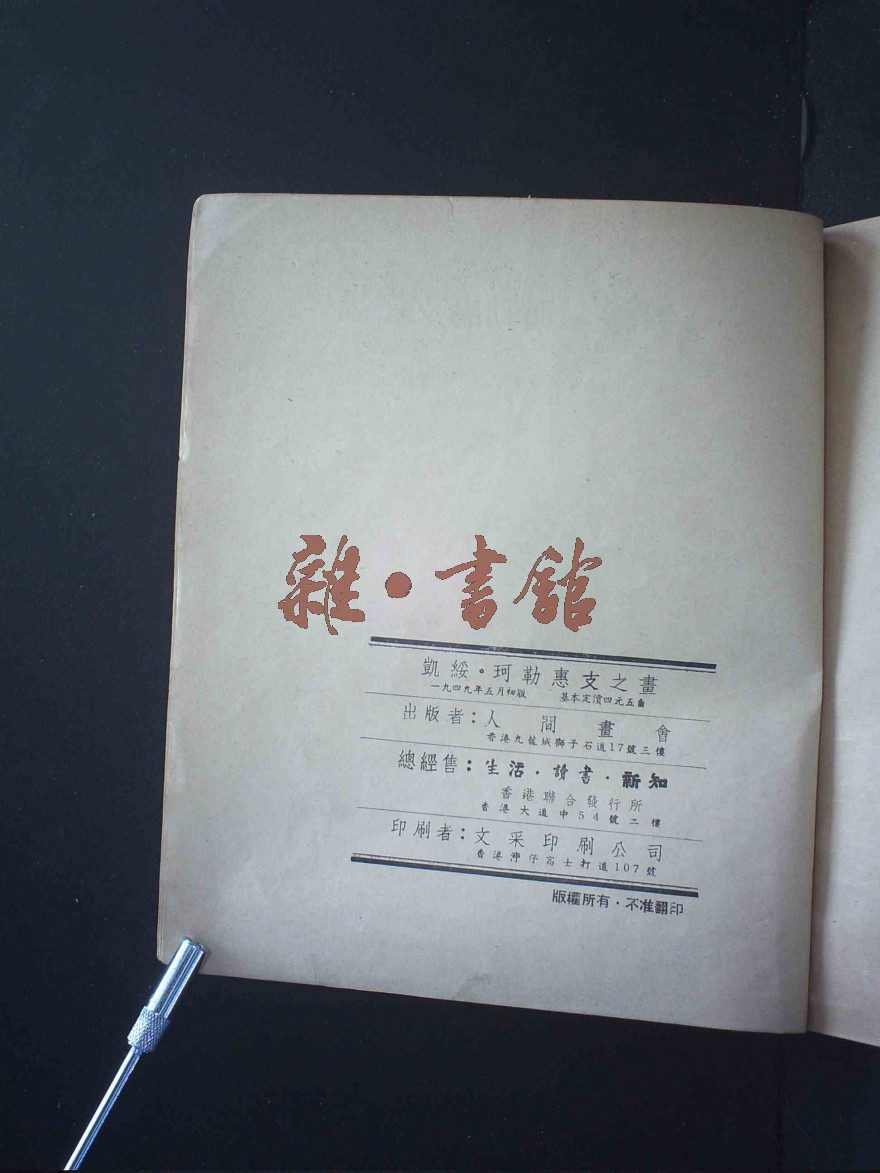 雜·書館
凱綏·珂勒惠支之畫
一九四九年五月初版 基本定價四元五角
出版者：人間畫會
香港九龍城獅子石道17號三樓
總經售：生活·讀書·新知
香港聯合發行所
香港大道中54號二樓
印刷者：文采印刷公司
香港灣仔高士打道107號
版權所有·不准翻印